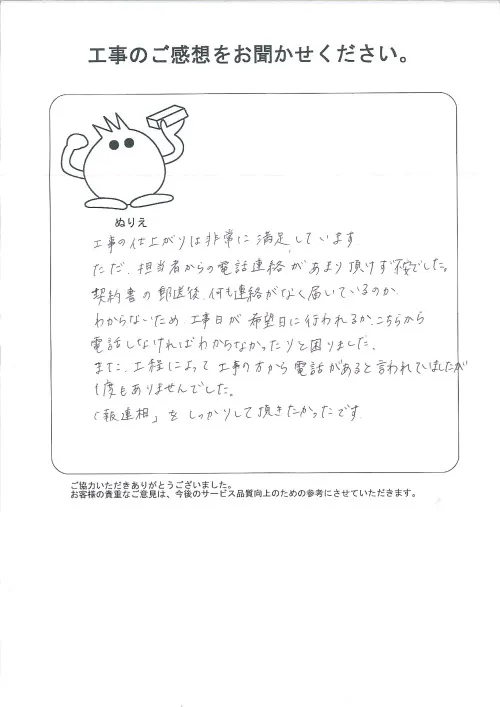 工事のご感想をお聞かせください。
ぬりえ
工事の仕上がりは非常に満足しています
ただ、担当者からの電話連絡があまり頂けず不安でした。
契約書の郵送後、何も連絡がなく届いているのか、
わからないため、工事日が希望日に行われるか、こちらから
電話しなければわからなかったりと困りました。
また、工程によって工事の方から電話があると言われていましたが
1度もありませんでした。
「報連相」をしっかりして頂きたかったです。
ご協力いただきありがとうございました。
お客様の貴重なご意見は、今後のサービス品質向上のための参考にさせていただきます。